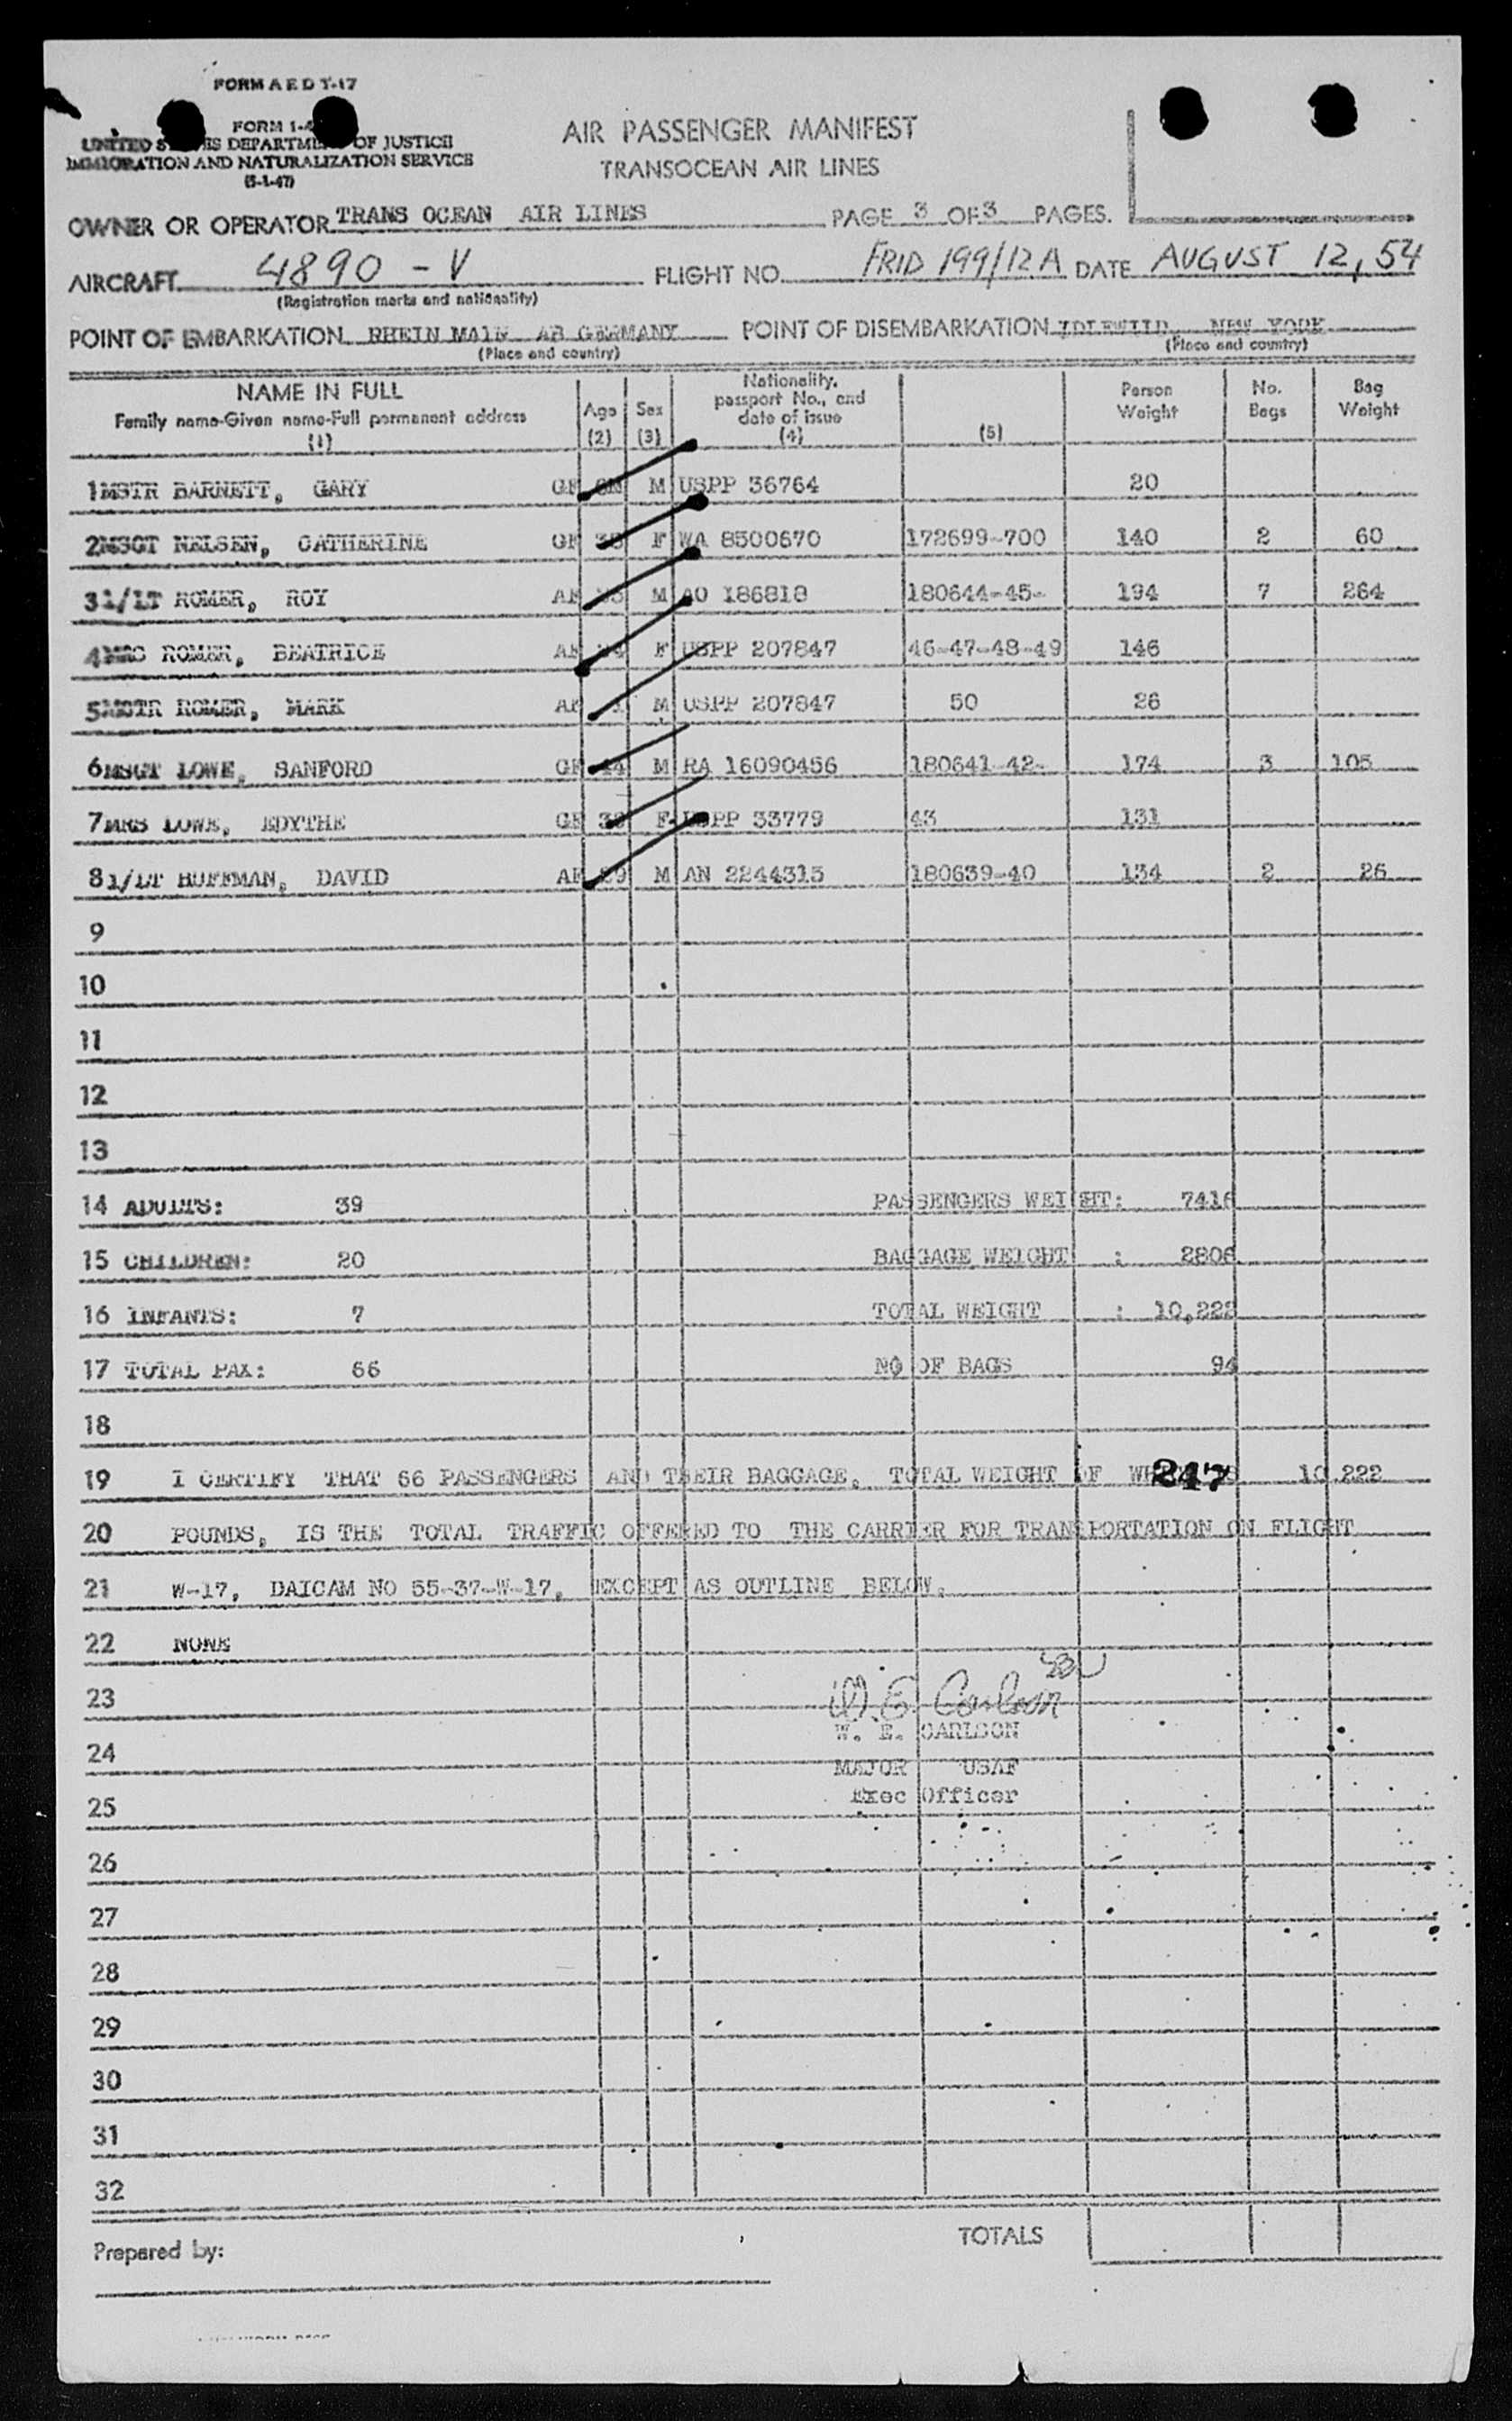 FORM A E D T-17
FORM 1-4
UNITED STATES DEPARTMENT OF JUSTICE
IMMIGRATION AND NATURALIZATION SERVICE
(5-1-47)
AIR PASSENGER MANIFEST
TRANSOCEAN AIR LINES
OWNER OR OPERATOR TRANS OCEAN AIR LINES PAGE 3 OF 3 PAGES.
AIRCRAFT 4890 - V FLIGHT NO. FRID 199/12A DATE AUGUST 12, 54
(Registration marks and nationality)
POINT OF EMBARKATION RHEIN MAIN AB GERMANY POINT OF DISEMBARKATION IDLEWILD, NEW YORK
(Place and country) (Place and country)
NAME IN FULL
Family name-Given name-Full permanent address
(1)
Age
(2)
Sex
(3)
Nationality, passport No., and date of issue
(4)
(5)
Person Weight
No. Bags
Bag Weight
1 MSTR BARNETT, GARY GF M USPP 36764 20
2 MSGT NELSEN, CATHERINE GF F WA 8500670 172699-700 140 2 60
3 1/LT ROMER, ROY AF M AO 186818 180644-45- 194 7 264
4 MRS ROMER, BEATRICE AF F USPP 207847 46-47-48-49 146
5 MSTR ROMER, MARK AF M USPP 207847 50 26
6 MSGT LOWE, SANFORD GF 44 M RA 16090456 180641-42- 174 3 105
7 MRS LOWE, EDYTHE GF F USPP 33779 43 131
8 1/LT HUFFMAN, DAVID AF M AN 2244315 180639-40 134 2 26
9
10
11
12
13
14 ADULTS: 39 PASSENGERS WEIGHT: 7416
15 CHILDREN: 20 BAGGAGE WEIGHT : 2806
16 INFANTS: 7 TOTAL WEIGHT : 10,222
17 TOTAL PAX: 66 NO OF BAGS 94
18
19 I CERTIFY THAT 66 PASSENGERS AND THEIR BAGGAGE, TOTAL WEIGHT OF 247 10,222
20 POUNDS, IS THE TOTAL TRAFFIC OFFERED TO THE CARRIER FOR TRANSPORTATION ON FLIGHT
21 W-17, DAICAM NO 55-37-W-17, EXCEPT AS OUTLINE BELOW.
22 NONE
23 W. E. Carlson
W. E. CARLSON
24
MAJOR USAF
25 Exec Officer
26
27
28
29
30
31
32
Prepared by: TOTALS